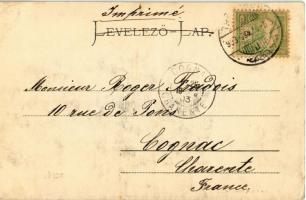 Imprimé
LEVELEZŐ-LAP.
Monsieur Roger
10 rue de Pons
Cognac
Charente
France